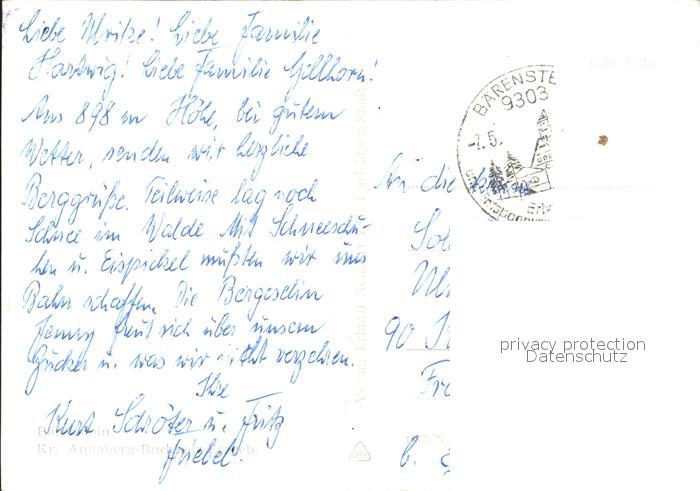 Liebe Ulrike! Liebe Familie
Hartwig! Liebe Familie Gellhorn!
Aus 898 m Höhe, bei gutem
Wetter, senden wir herzliche
Berggrüße. Teilweise lag noch
Schnee im Walde. Mit Schneeschu-
hen u. Eispickel mußten wir uns
Bahn schaffen. Die Bergeselin
Jenny freut sich über unsern
Zucker u. was wir nicht verzehren.
Ihre
Kurt Schröter u. Fritz
Friebel.
Kr. Annaberg-Buchholz
BÄRENSTE
9303
-7.5.
An die
90
privacy protection
Datenschutz
Echt Foto